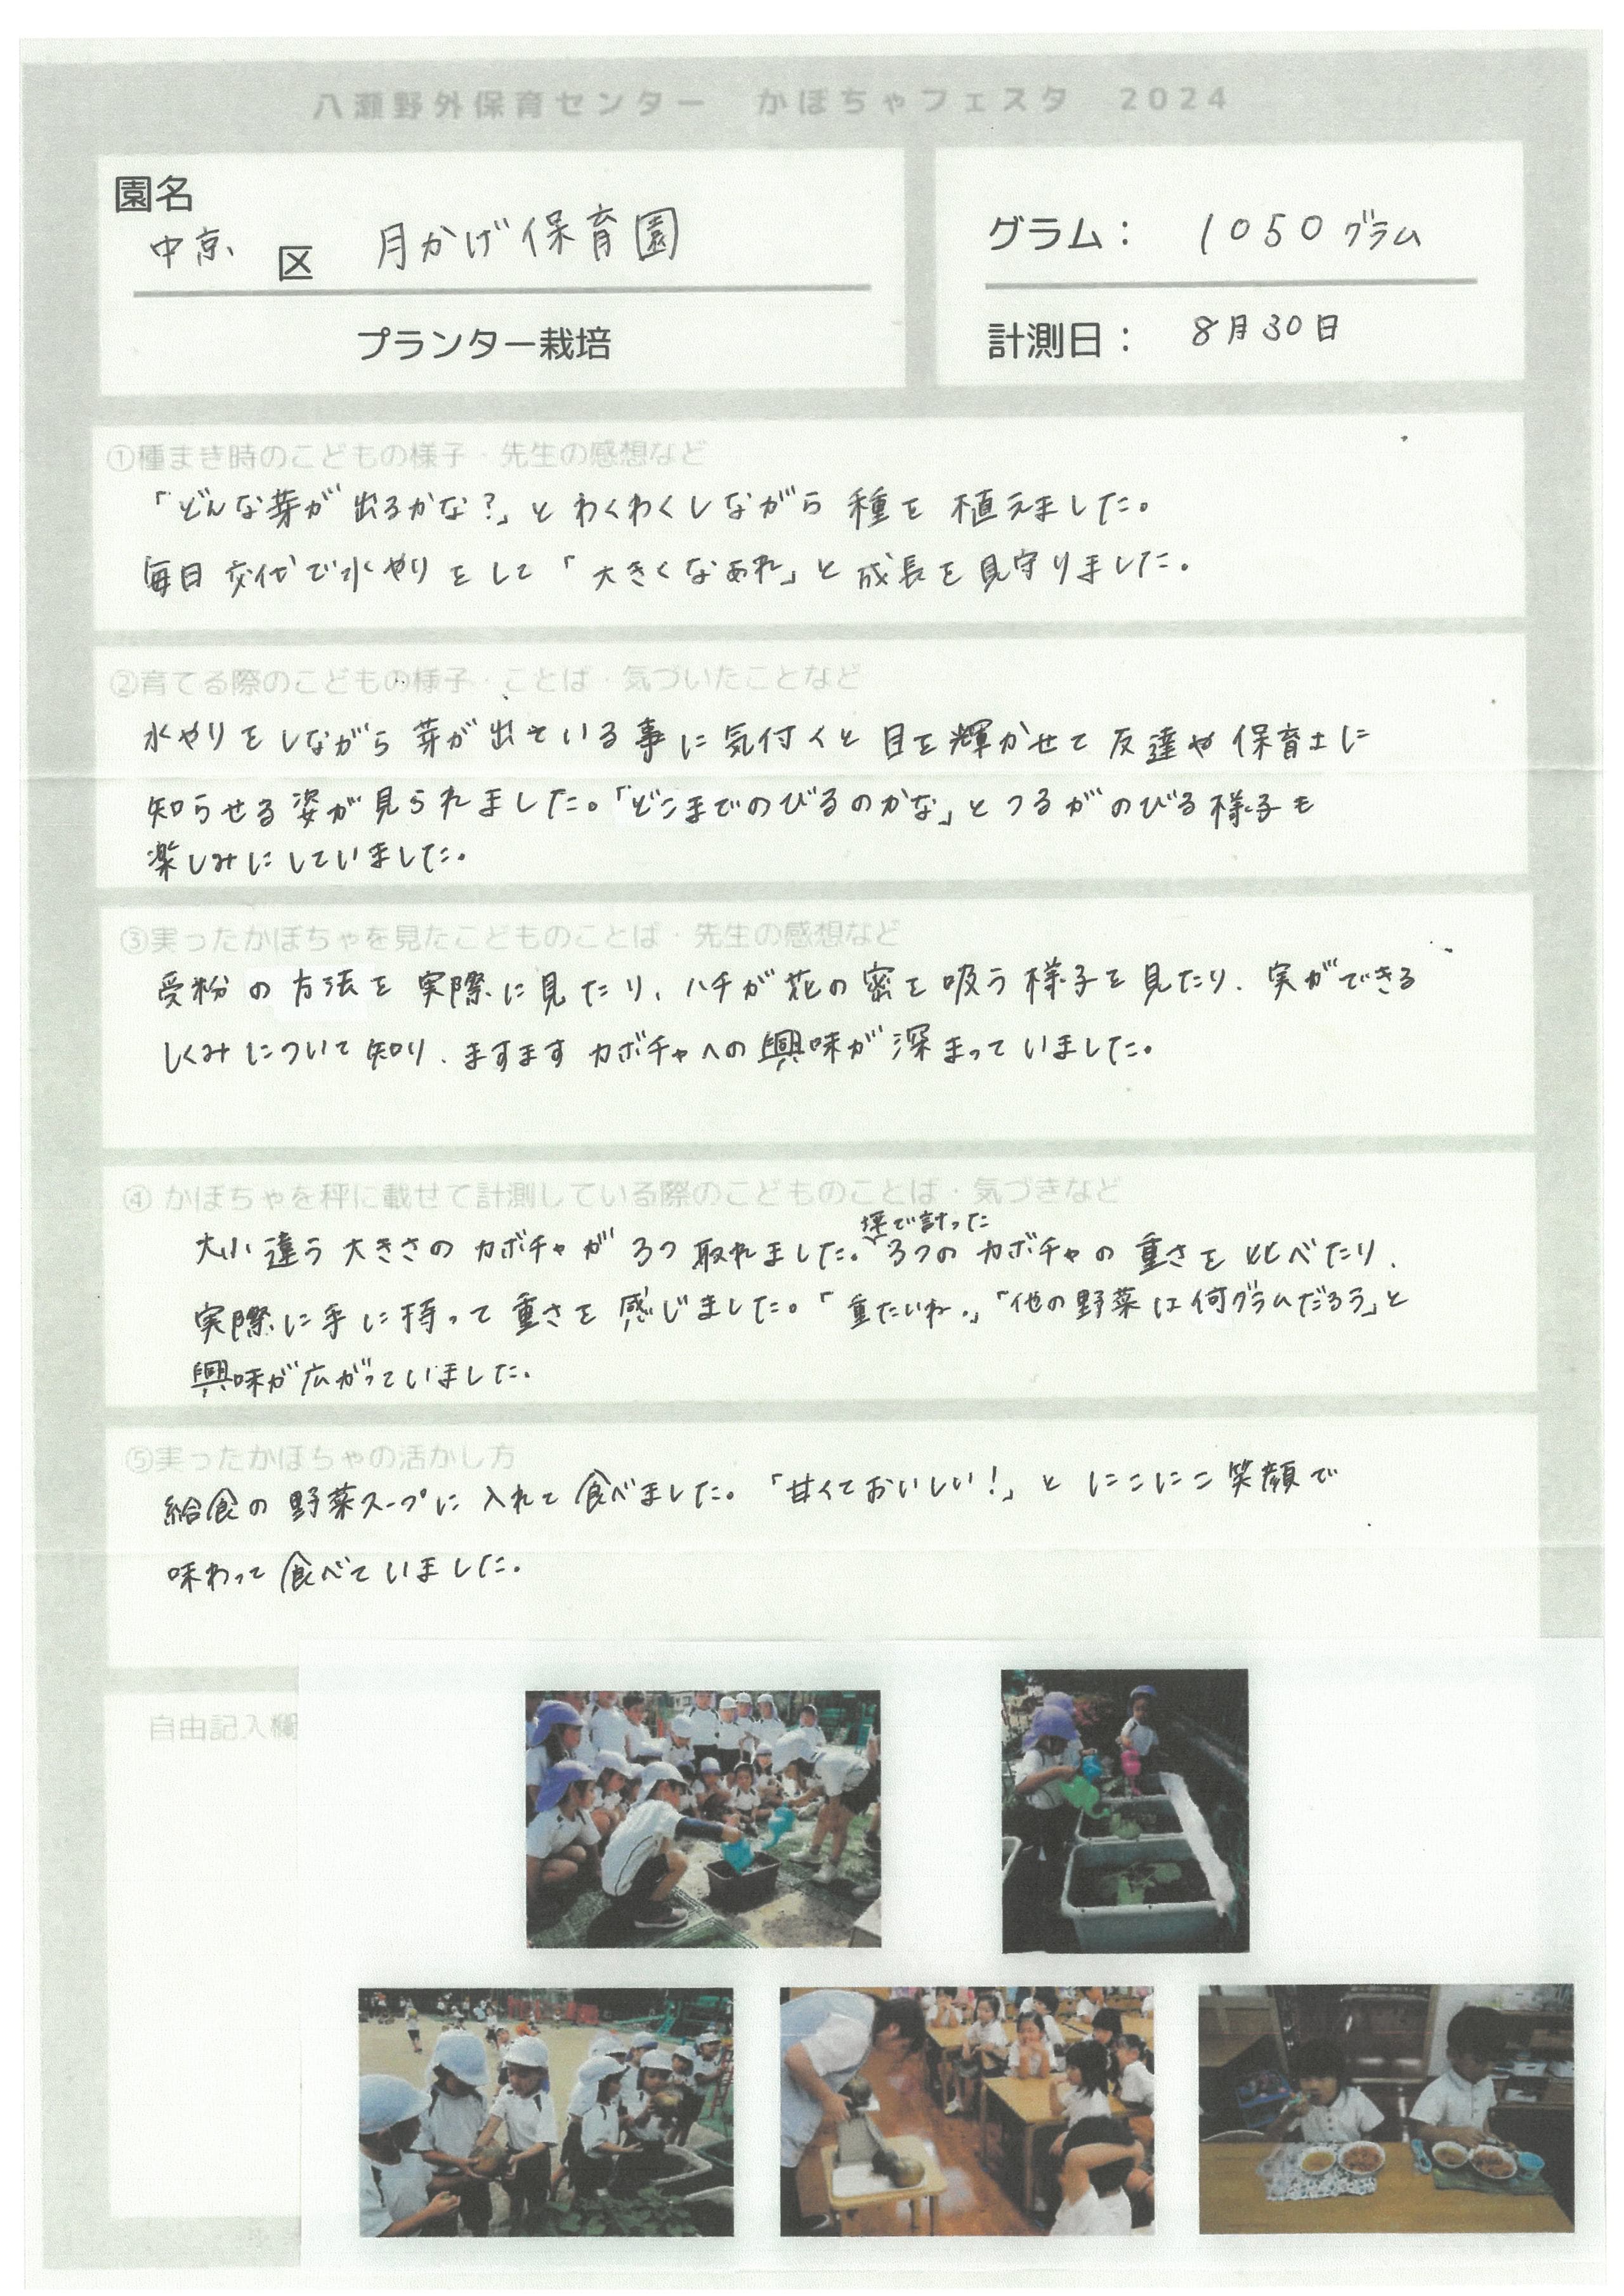 八瀬野外保育センター　かぼちゃフェスタ　2024
園名
中京 区 月かげ保育園
プランター栽培
グラム： 1050グラム
計測日： 8月30日
①種まき時のこどもの様子・先生の感想など
「どんな芽が出るかな？」とわくわくしながら種を植えました。
毎日交代で水やりをして「大きくなあれ」と成長を見守りました。
②育てる際のこどもの様子・ことば・気づいたことなど
水やりをしながら芽が出ている事に気付くと目を輝かせて友達や保育士に
知らせる姿が見られました。「どこまでのびるのかな」とつるがのびる様子も
楽しみにしていました。
③実ったかぼちゃを見たこどものことば・先生の感想など
受粉の方法を実際に見たり、ハチが花の蜜を吸う様子を見たり、実ができる
しくみについて知り、ますますカボチャへの興味が深まっていました。
④ かぼちゃを秤に載せて計測している際のこどものことば・気づきなど
大小違う大きさのカボチャが3つ取れました。秤で計った3つのカボチャの重さを比べたり、
実際に手に持って重さを感じました。「重たいね。」「他の野菜は何グラムだろう」と
興味が広がっていました。
⑤実ったかぼちゃの活かし方
給食の野菜スープに入れて食べました。「甘くておいしい！」とにこにこ笑顔で
味わって食べていました。
自由記入欄